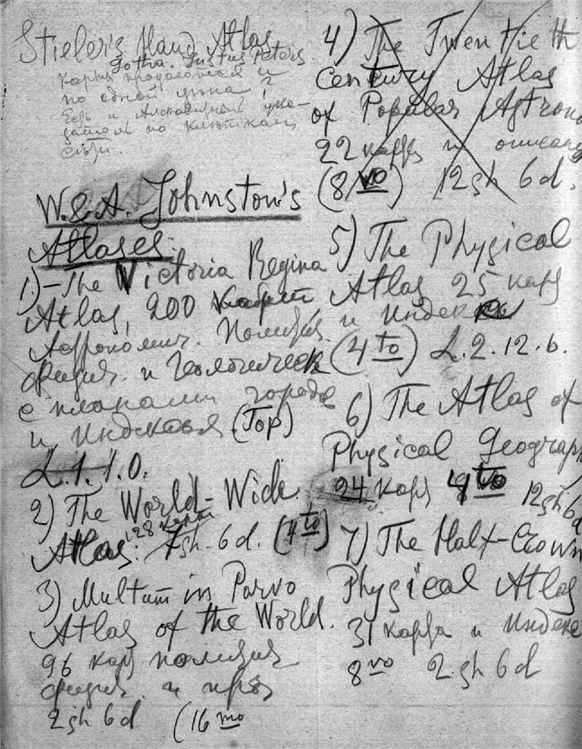 Stieler's Hand Atlas
Gotha. Justus Perthes
Карты продаются и
по одной цена ?
Есть и Алфавитный ука-
затель по клеточкам
сѣти.
W. & A. Johnston's
Atlases.
1) - The Victoria Regina
Atlas, 200 карт
Астрономич. Полицич. и
физич. и Геологическ
с планами городов
и Индексом (Top)
L.1.1.0.
2) The World-Wide
128 карт
Atlas. 7sh. 6d. (4to)
3) Multum in Parvo
Atlas of the World.
96 карт
физич. и
2 sh 6d (16mo
4) The Twentieth
Century Atlas
of Popular Astrono
22 карт и описан
(8vo) 12sh 6d.
5) The Physical
Atlas 25 карт
и Индекс
(4to) L.2.12.6.
6) The Atlas of
Physical Geograph
24 карт 4to 12sh 6
7) The Half-Crown
Physical Atlas
31 карта и Индекс
8vo 2 sh 6d